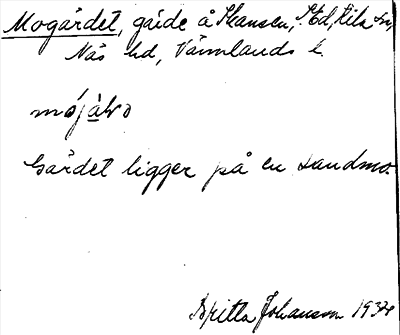 Mogärdet, gärde å Skansen, S. Ed, Kila sn,
Näs hd, Värmlands l.
Gärdet ligger på en sandmo.
Britta Johanson 1934